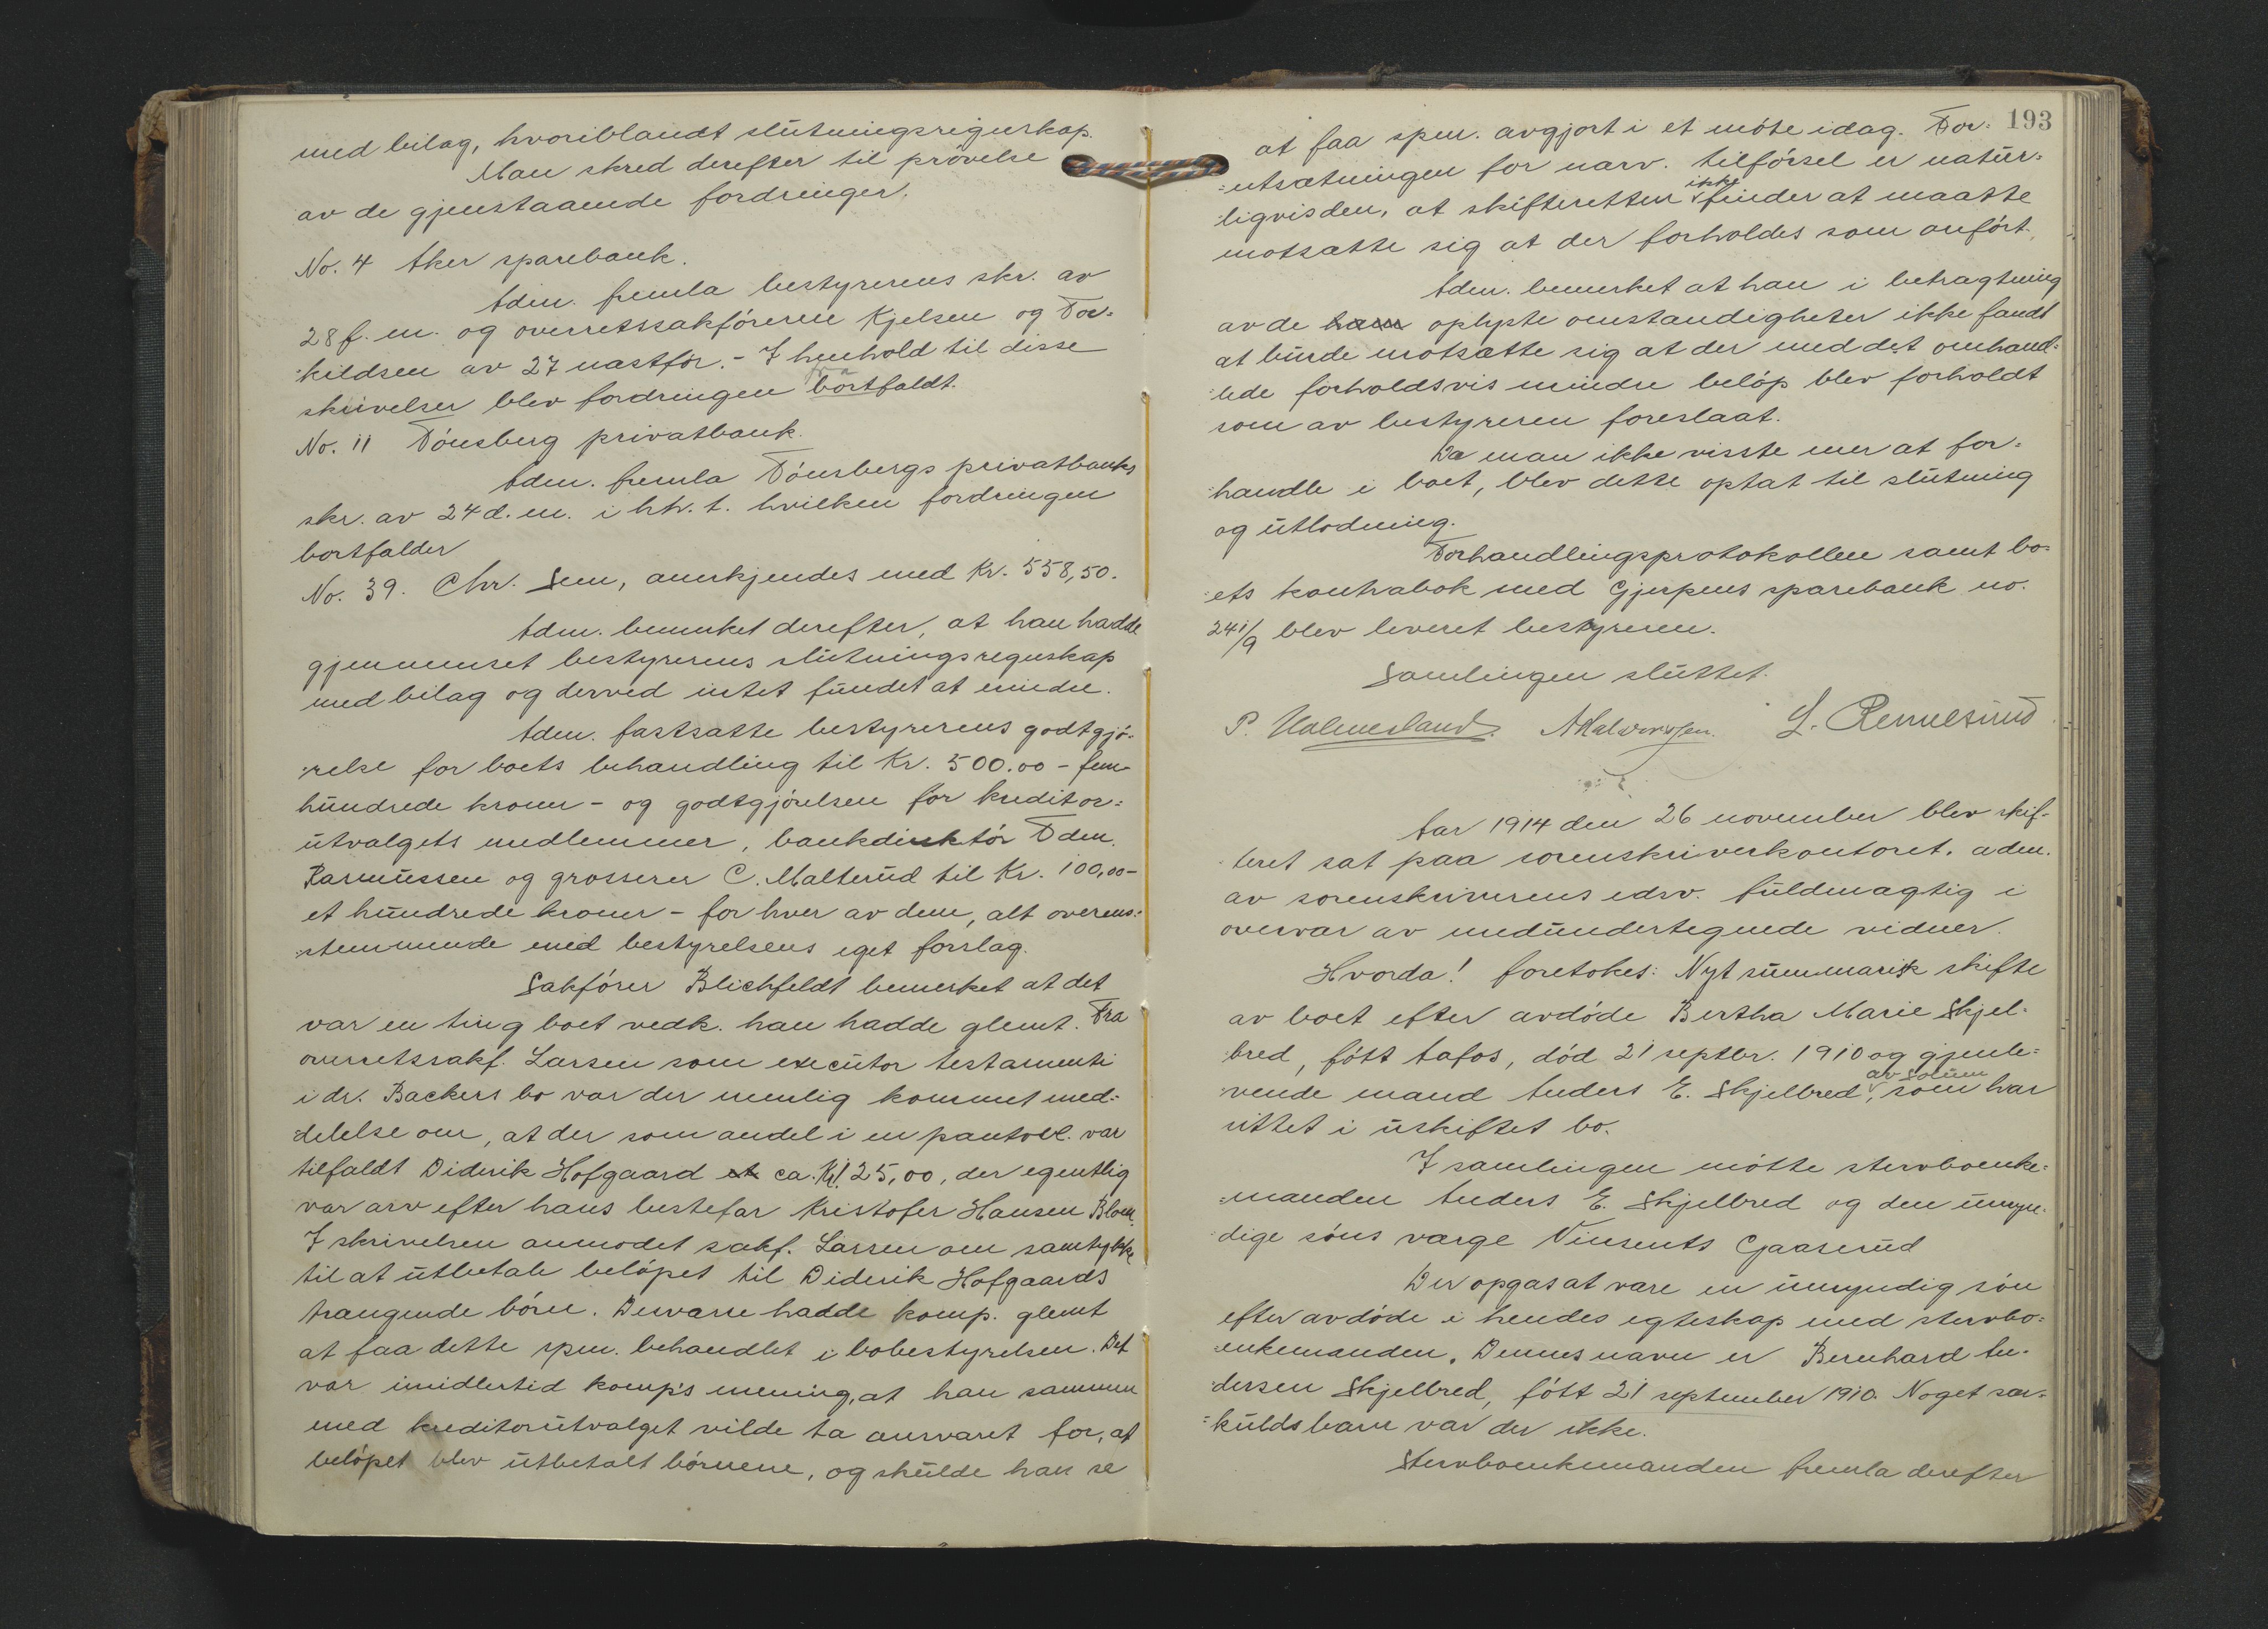 med bilag, hvoriblandt slutningsregnskap.
Man skred derefter til prøvelse
av de gjenstaaende fordringer.
No. 4 Aker sparebank.
Adm. fremla bestyrerens skr. av
28 f. m. og overretssakførerne Kjelsen og Tor-
kildsen av 27 næstfor. - I henhold til disse
skrivelser blev fordringen bortfaldt.
No. 11 Tønsberg privatbank.
Adm. fremla Tønsbergs privatbanks
skr. av 24 d. m. i hh. t. hvilken fordringen
bortfalder
No. 39. Chr. Sem, anerkjendes med Kr. 558,50.
Adm. bemerket derefter, at han hadde
gjennemset bestyrerens slutningsregnskap
med bilag og derved intet fundet at erindre.
Adm. fastsatte bestyrerens godtgjø-
:relse for boets behandling til Kr. 500.00 - fem-
hundrede kroner - og godtgjørelsen for kreditor=
utvalgets medlemmer, bankdirektør Tdm.
Rasmussen og grosserer C. Malterud til Kr. 100,00 -
et hundrede kroner - for hver av dem, alt overens:
:stemmende med bestyrelsens eget forslag.
Sakfører Blichfeldt bemerket at det
var en ting boet vedk. han hadde glemt. Fra
overretssakf. Larsen som executor testamenti
i dr. Backers bo var der nemlig kommet med:
:delelse om, at der som andel i en pantobl. var
tilfaldt Diderik Hofgaard et ca. Kr. 25,00, der egentlig
var arv efter hans bestefar Kristofer Hansen Blom.
I skrivelsen anmodet sakf. Larsen om samtykke
til at utbetale beløpet til Diderik Hofgaards
trængende børn. Desværre hadde komp. glemt
at faa dette spm. behandlet i bobestyrelsen. Det
var imidlertid komp's mening, at han sammen
med kreditorutvalget vilde ta ansvaret for, at
beløpet blev utbetalt børnene, og skulde han se
193
at faa spm. avgjort i et møte idag. For:
:utsætningen for nærv. tilførsel er natur:
:ligvis den, at skifteretten ikke finder at maatte
motsætte sig at der forholdes som anført.
Adm. bemerket at han i betragtning
av de ham oplyste omstændigheter ikke fandt
at burde motsætte sig at der med det omhand:
:lede forholdsvis mindre beløp blev forholdt
som av bestyreren foreslaat.
Da man ikke visste mer at for=
:handle i boet, blev dette optat til slutning
og utlodning.
Forhandlingsprotokollen samt bo:
:ets kontrabok med Gjerpens sparebank no.
241/9 blev leveret bestyreren.
Samlingen sluttet.
P. Valmesland. A Halvorsen. L. Remesund
Aar 1914 den 26 november blev skif-
teret sat paa sorenskriverkontoret. adm.
av sorenskriverens edsv. fuldmægtig i
overvær av medundertegnede vidner.
Hvorda! foretokes: Nyt summarisk skifte
av boet efter avdøde Bertha Marie Skjel:
:bred, født Aafos, død 21 septbr. 1910 og gjenle=
:vende mand Anders E. Skjelbred av Solum, som har
sittet i uskiftet bo.
I samlingen møtte stervboenke:
:manden Anders E. Skjelbred og den umyn:
:dige søns værge Vinsents Gaaserud
Der opgas at være en umyndig søn
efter avdøde i hendes egteskap med stervbo:
:enkemanden. Dennes navn er Bernhard An-
:dersen Skjelbred, født 21 september 1910. Noget sær:
:kuldsbarn var der ikke.
Stervboenkemanden fremla derefter